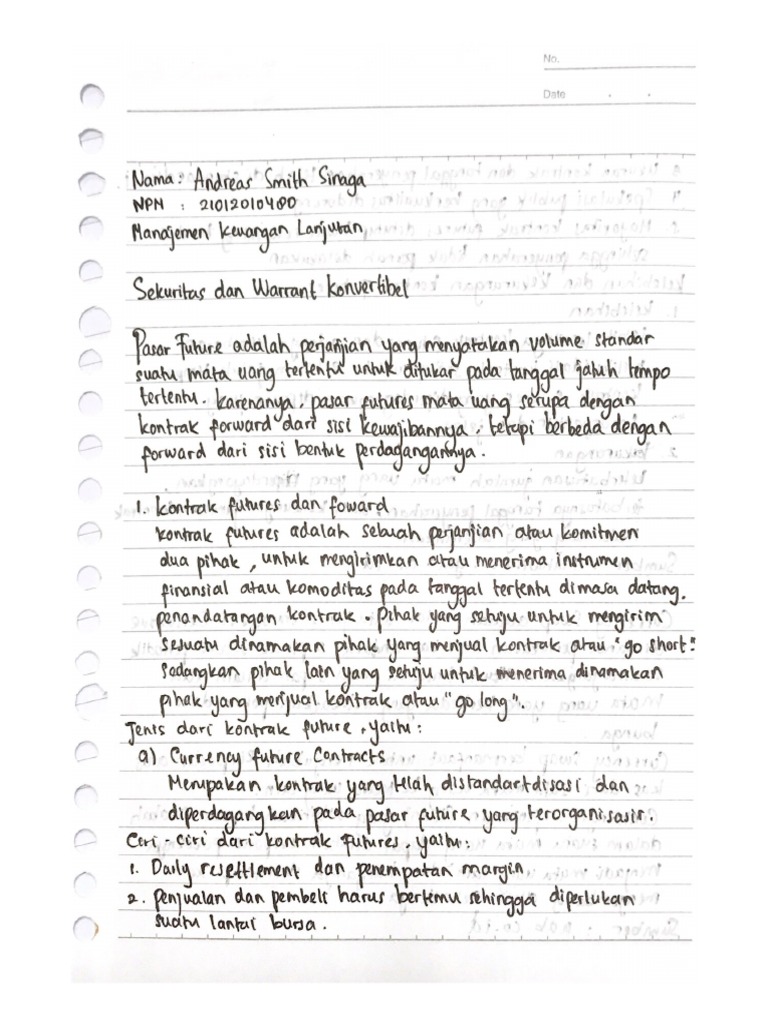 No.
Date
Nama: Andreas Smith Sinaga
NPN : 21012010480
Manajemen Keuangan Lanjutan
Sekuritas dan Warrant Konvertibel
Pasar Future adalah perjanjian yang menyatakan volume standar
suatu mata uang tertentu untuk ditukar pada tanggal jatuh tempo
tertentu. karenanya, pasar futures mata uang serupa dengan
kontrak forward dari sisi kewajibannya, tetapi berbeda dengan
forward dari sisi bentuk perdagangannya.
1. kontrak futures dan foward
kontrak futures adalah sebuah perjanjian atau komitmen
dua pihak, untuk mengirimkan atau menerima instrumen
finansial atau komoditas pada tanggal tertentu dimasa datang.
penandatangan kontrak. pihak yang setuju untuk mengirim
sesuatu dinamakan pihak yang menjual kontrak atau "go short."
sadangkan pihak lain yang setuju untuk menerima dinamakan
pihak yang menjual kontrak atau "go long".
Jenis dari kontrak future, yaitu:
a) Currency future Contracts
Merupakan kontrak yang telah distandartdisasi dan
diperdagangkan pada pasar future yang terorganisasir.
Ciri-ciri dari kontrak futures, yaitu:
1. Daily resettlement dan penempatan margin
2. penjualan dan pembeli harus bertemu sehingga diperlukan
suatu lantai bursa.